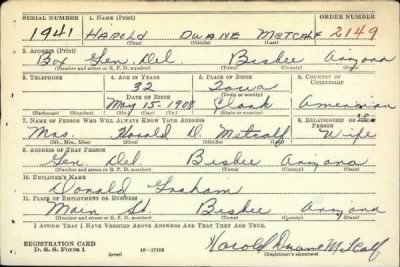 SERIAL NUMBER 1. NAME (Print) ORDER NUMBER
1941 HAROLD DUANE METCALF 2149
(First) (Middle) (Last)
2. ADDRESS (Print)
Box Gen. Del. Bisbee Arizona
(Number and street or R. F. D. number) (Town) (County) (State)
3. TELEPHONE 4. AGE IN YEARS 5. PLACE OF BIRTH 6. COUNTRY OF CITIZENSHIP
32 Iowa
DATE OF BIRTH (Town or county)
May 15. 1908 Clark American
(Exchange) (Number) (Mo.) (Day) (Yr.) (State or country)
7. NAME OF PERSON WHO WILL ALWAYS KNOW YOUR ADDRESS 8. RELATIONSHIP OF THAT PERSON
Mrs. Harold D. Metcalf Wife
(Mr., Mrs., Miss) (First) (Middle) (Last)
9. ADDRESS OF THAT PERSON
Gen. Del Bisbee Arizona
(Number and street or R. F. D. number) (Town) (County) (State)
10. EMPLOYER'S NAME
Donald Graham
11. PLACE OF EMPLOYMENT OR BUSINESS
Main St Bisbee Arizona
(Number and street or R. F. D. number) (Town) (County) (State)
I AFFIRM THAT I HAVE VERIFIED ABOVE ANSWERS AND THAT THEY ARE TRUE.
REGISTRATION CARD
D. S. S. Form 1 (over) Harold Duane Metcalf
(Registrant's signature)